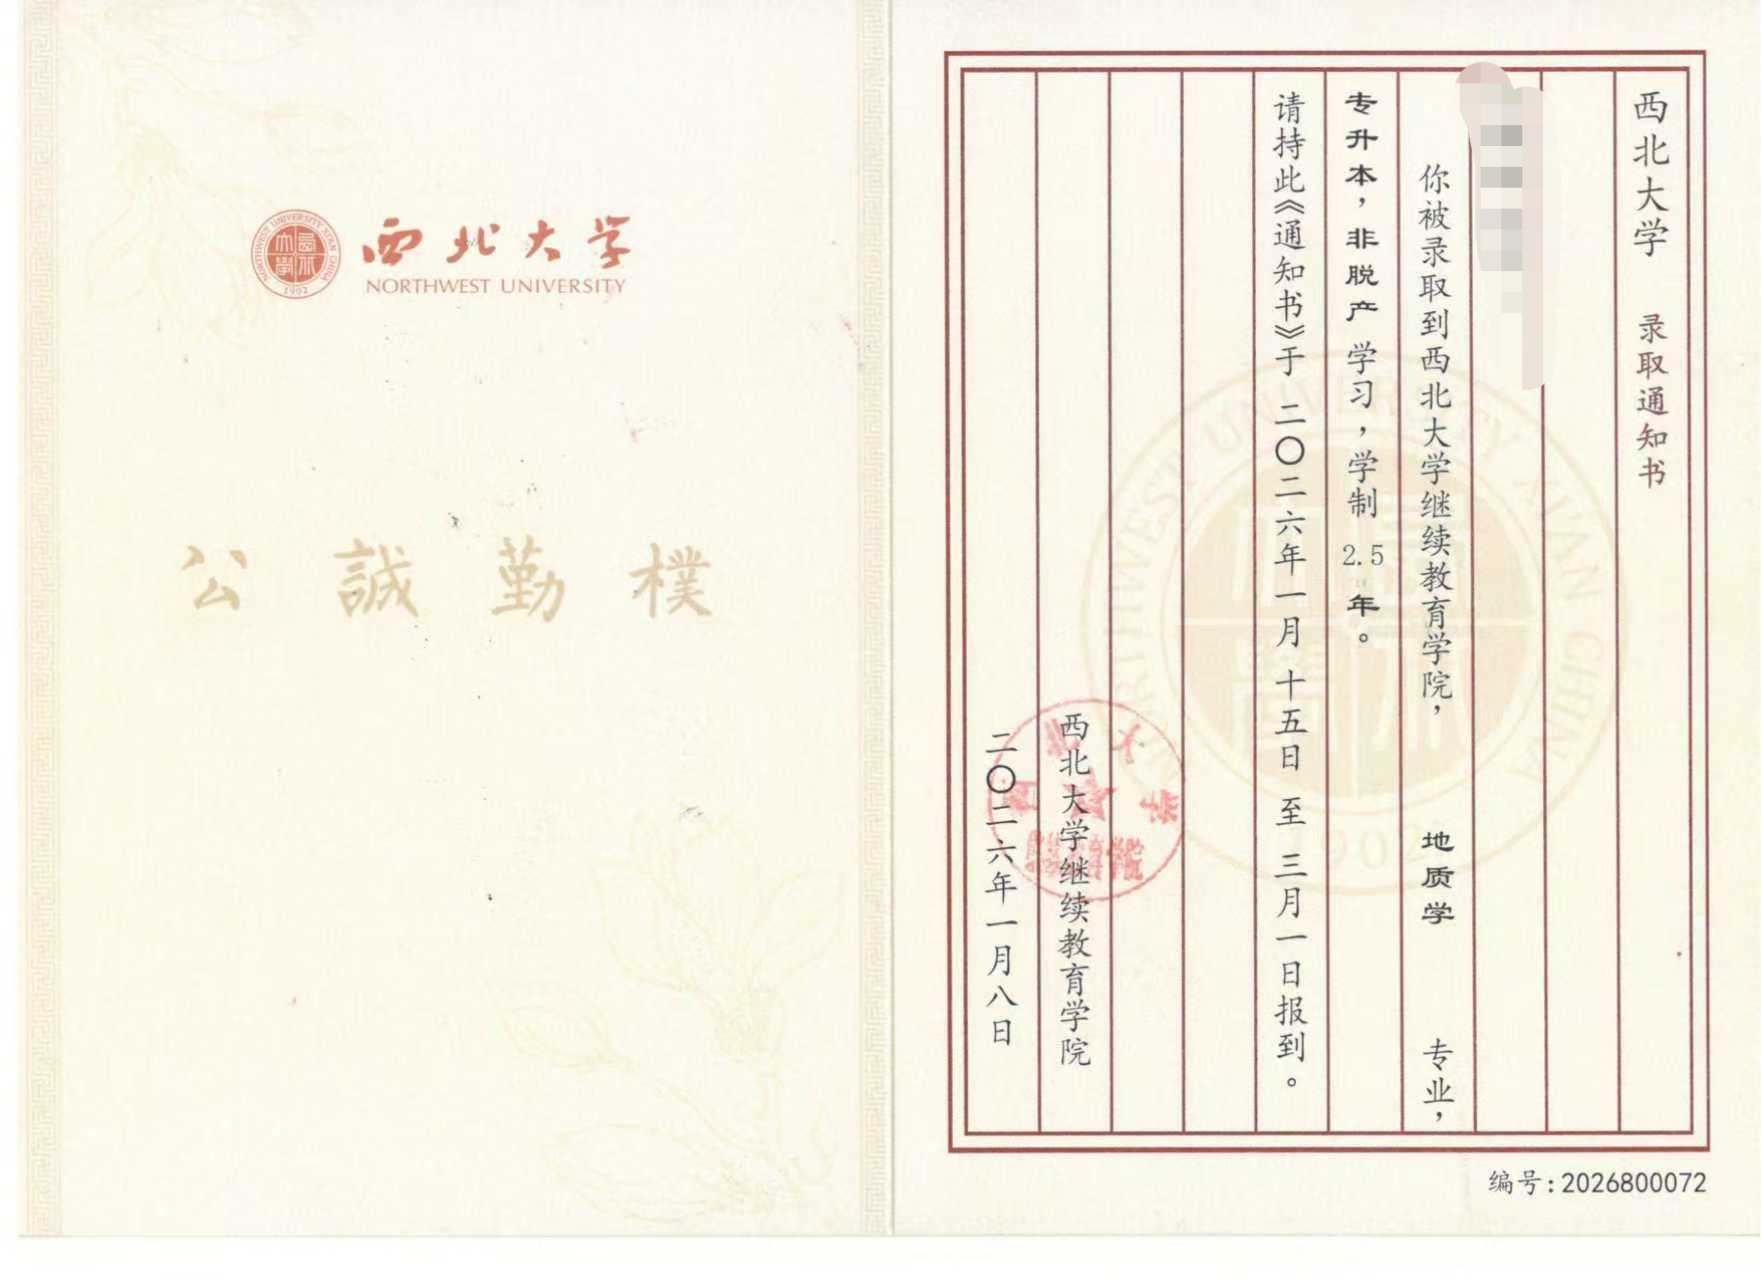 西北大学
NORTHWEST UNIVERSITY
NORTHWEST UNIVERSITY XI'AN CHINA
1902
公 誠 勤 樸
西北大学 录取通知书
你被录取到西北大学继续教育学院， 地质学 专业，
专升本，非脱产 学习，学制 2.5 年。
请持此《通知书》于 二〇二六年一月 十五日 至 三月一日报到。
西北大学继续教育学院
二〇二六年一月八日
NORTHWEST UNIVERSITY XI'AN CHINA
1902
西北大学
编号：2026800072